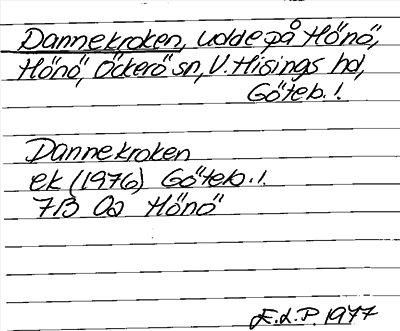 Dannekroken, udde på Hönö,
Hönö, Öckerö sn, V. Hisings hd,
Göteb. l.
Dannekroken
ek (1976) Göteb. l.
7B 0a Hönö
E.L.P. 1977